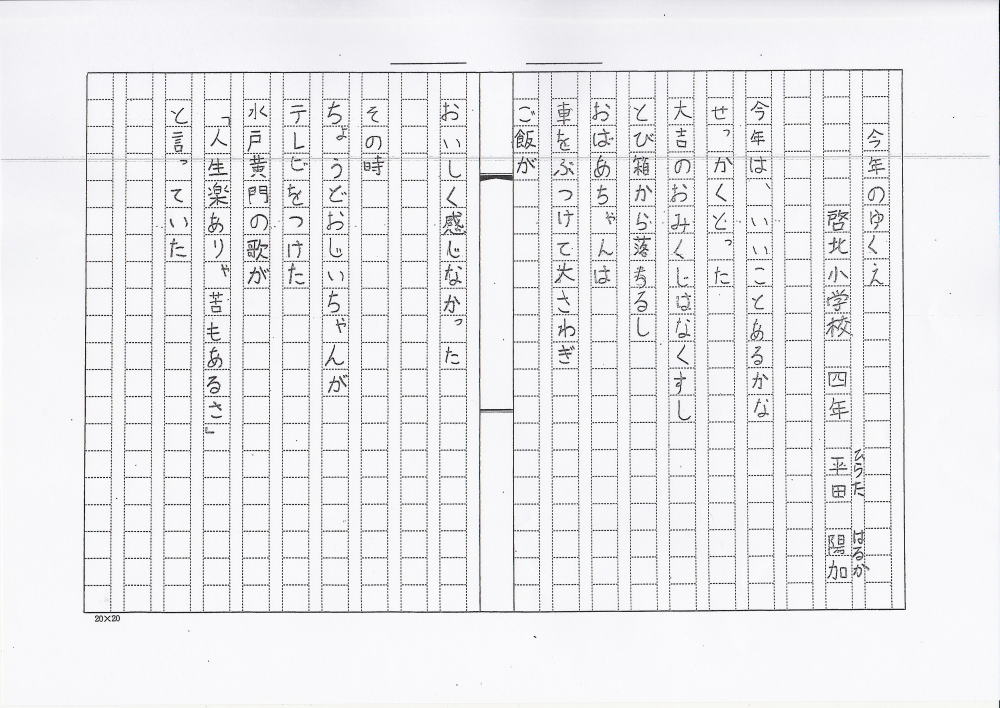 今年のゆくえ
啓北小学校 四年 平田 陽加
ひらた はるか
今年は、いいことあるかな
せっかくとった
大吉のおみくじはなくすし
とび箱から落ちるし
おばあちゃんは
車をぶつけて大さわぎ
ご飯が
おいしく感じなかった
その時
ちょうどおじいちゃんが
テレビをつけた
水戸黄門の歌が
「人生楽ありゃ苦もあるさ」
と言っていた
20×20